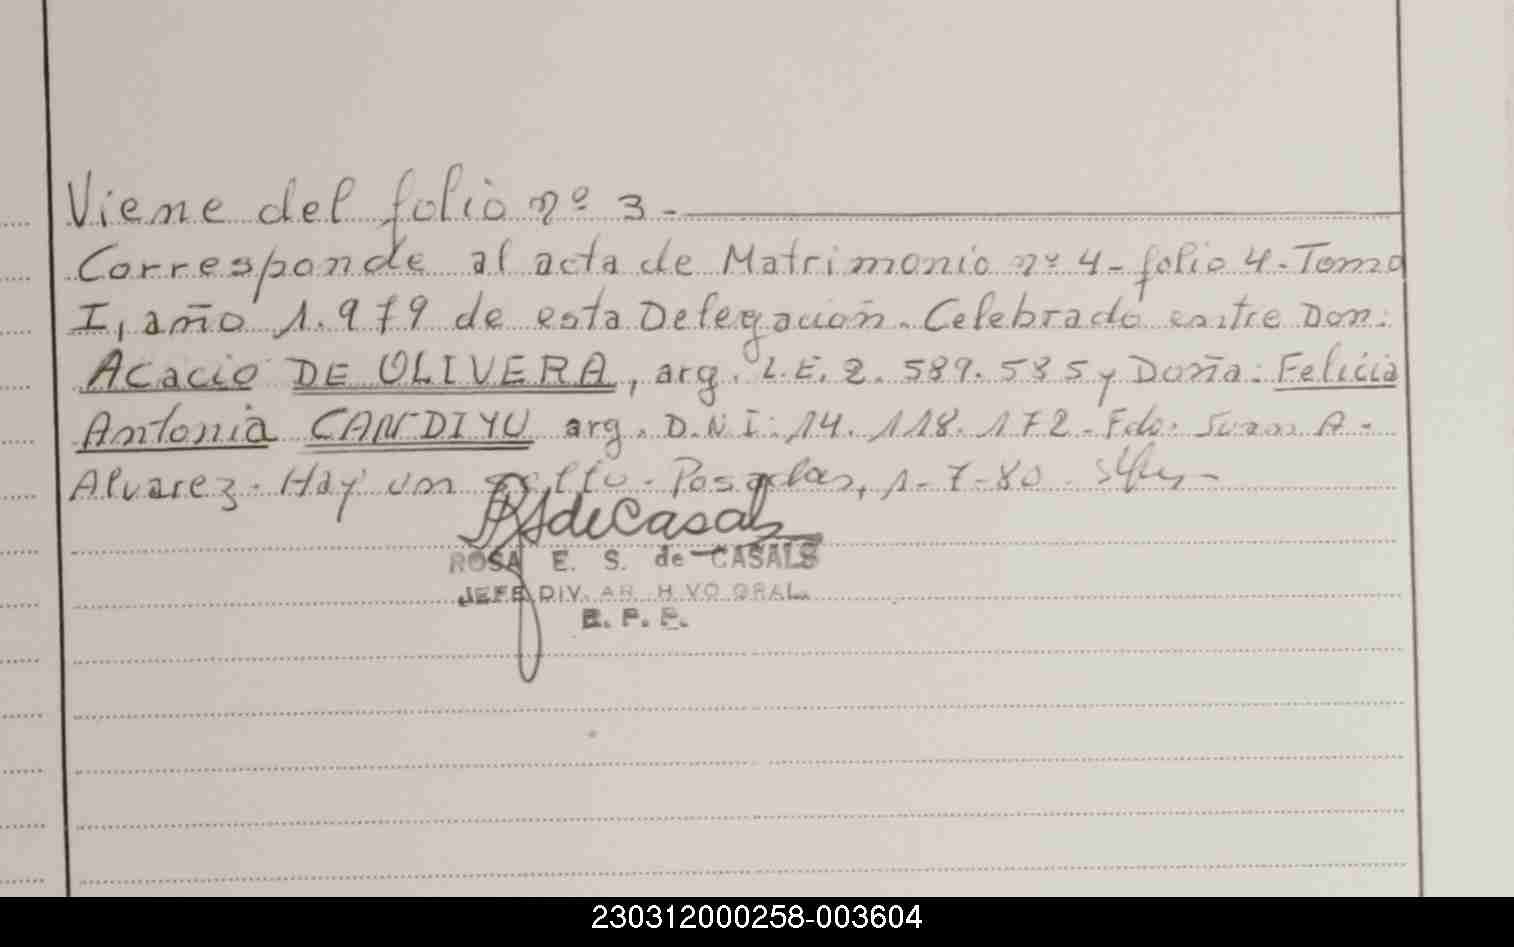 Viene del folio nº 3.-
Corresponde al acta de Matrimonio nº 4- folio 4- Tomo
I, año 1.979 de esta Delegación. Celebrado entre Don:
Acacio DE OLIVERA, arg. L.E. 2.589.535 y Doña: Felicia
Antonia CANDIYU arg. D.N.I: 14.118.172- Fdo. Juan A.
Alvarez. Hay un sello- Posadas, 1-7-80.
RSdeCasals
ROSA E. S. de CASALS
JEFE DIV. AR H VO GRAL.
230312000258-003604